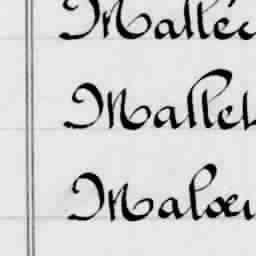 Mallé
Mallet
Malœu